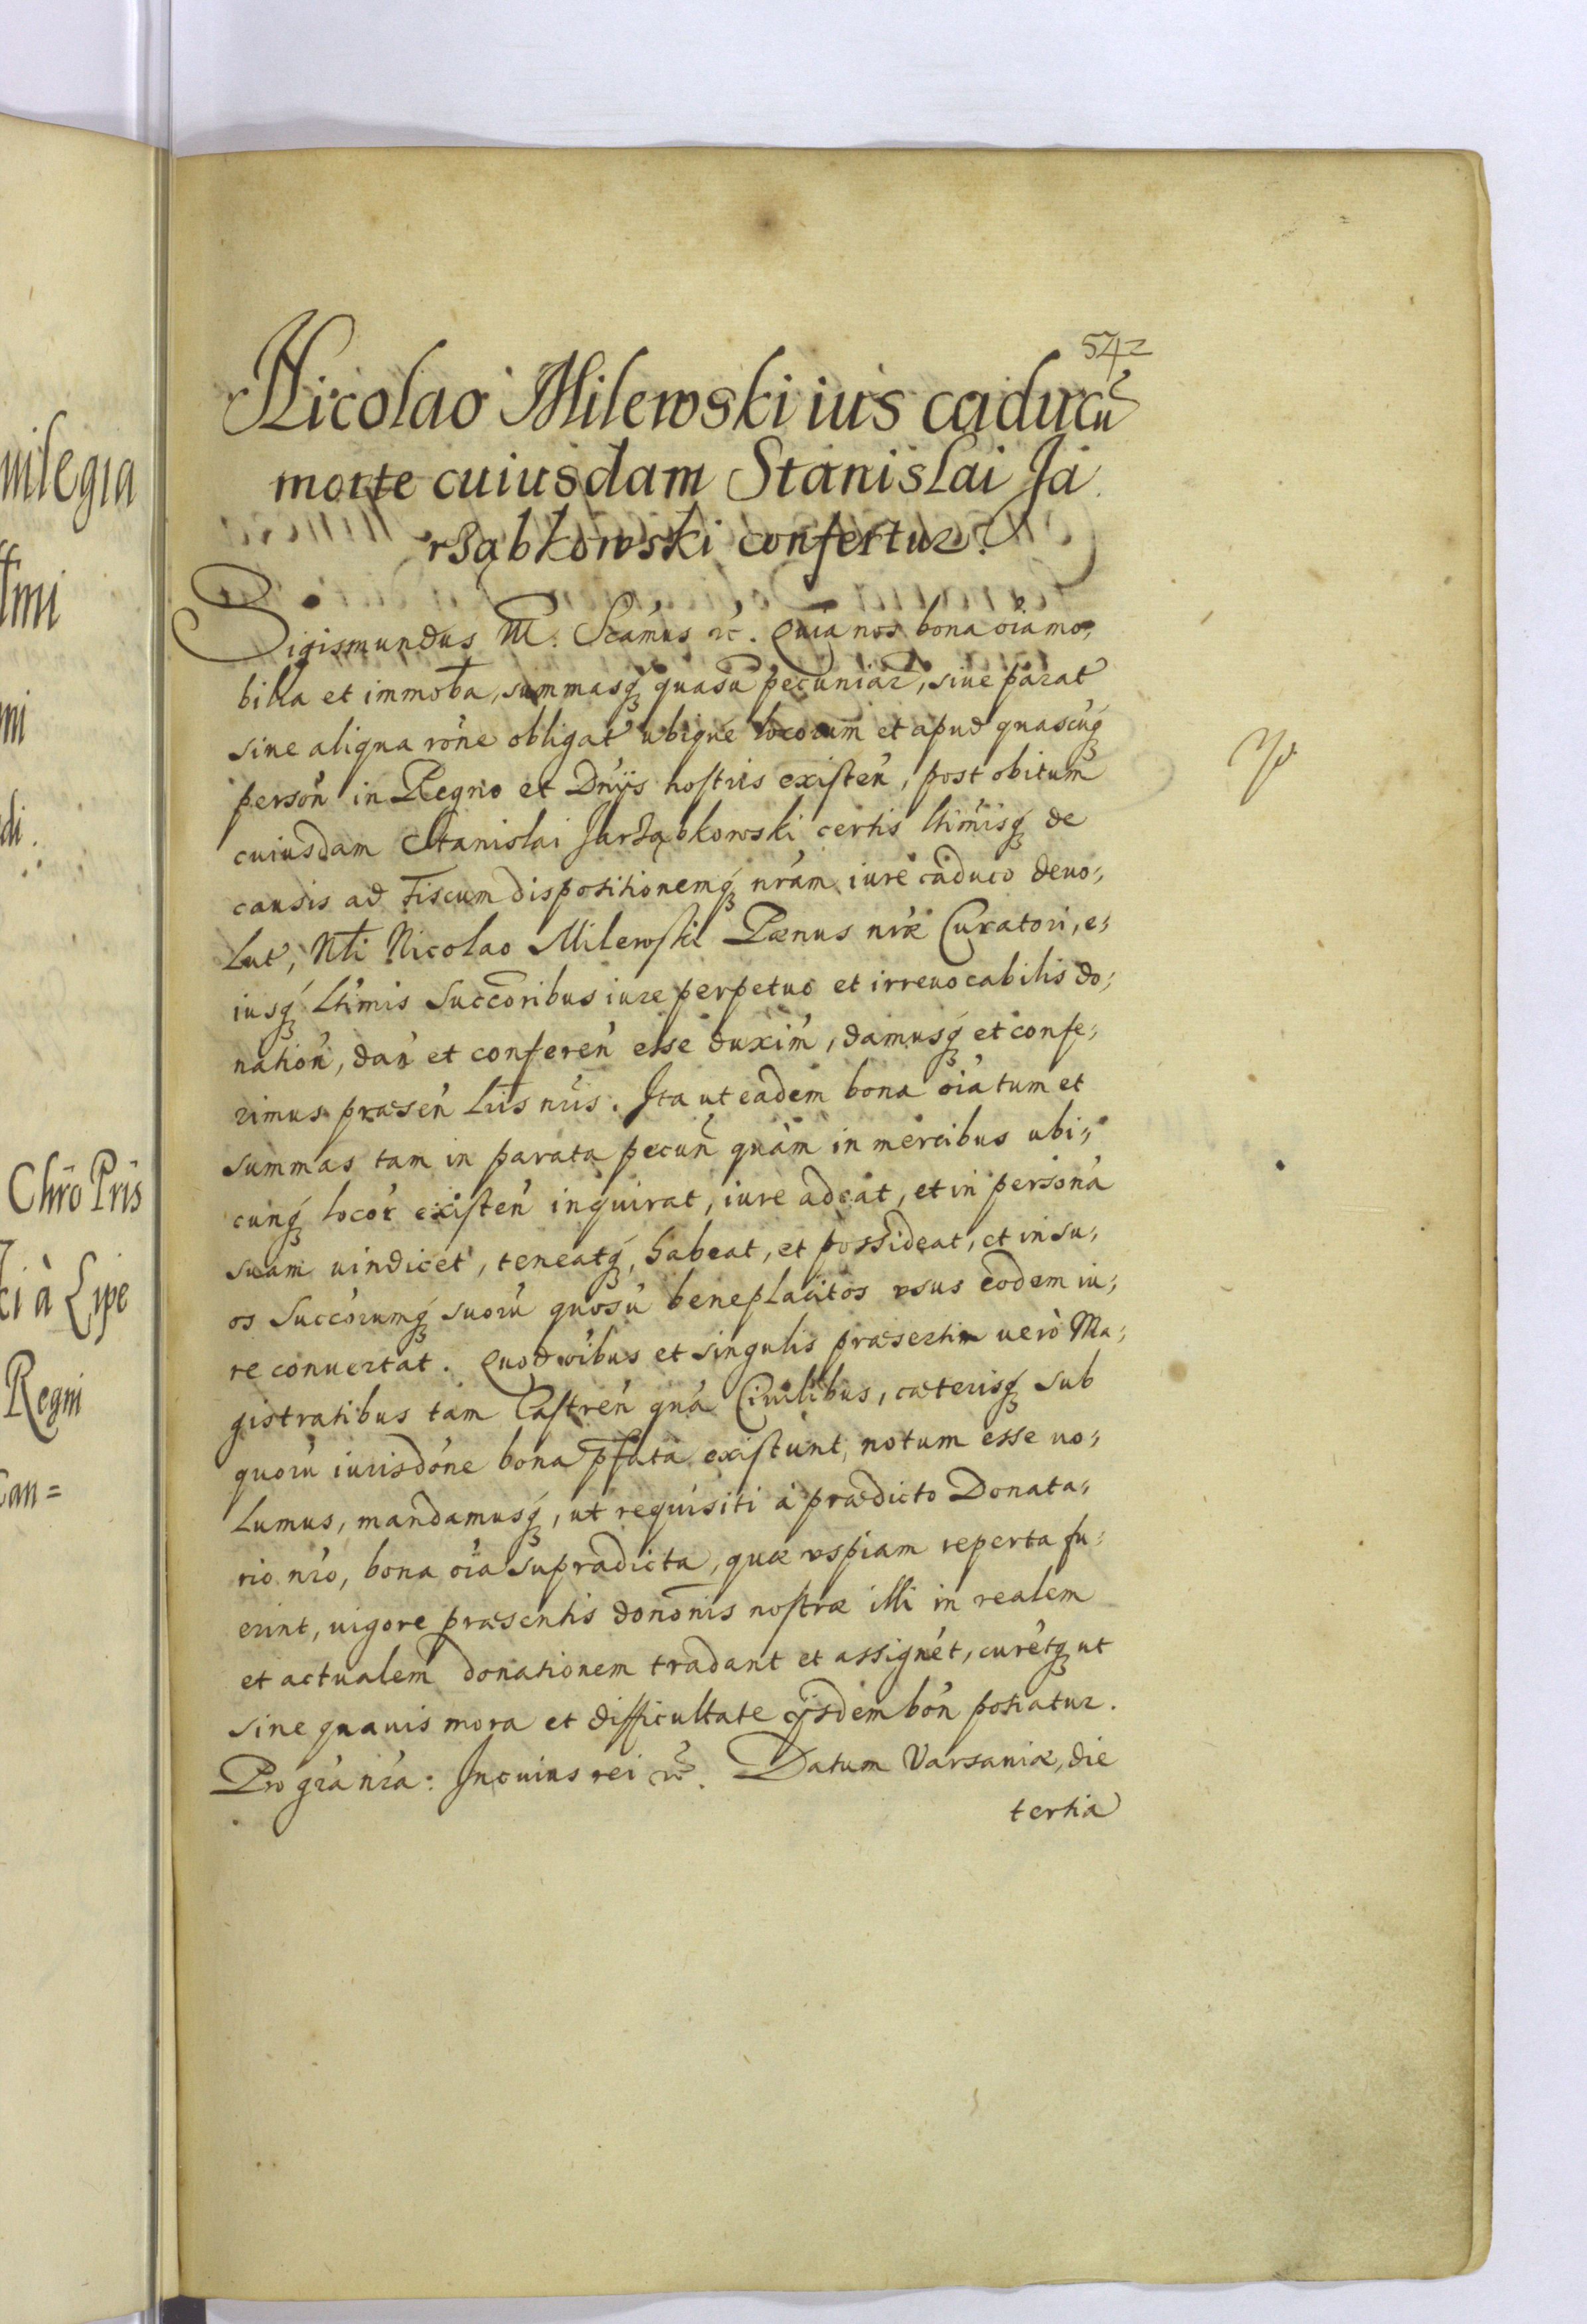 542
Nicolao Milewski ius caducũ
morte cuiusdam Stanislai Ja
rząbkowski confertur.
Sigismundus III. Scámus ꝛc. Quia nos bona oía mo,
bilia et immob̃a, summasq́ꝫ quasú pecuniar, siue parat
siue aliqua róne obligat ubiqué locorum et apud quascúq́ꝫ
persoń in Regno et Dńijs nostris existeń, post obitum
cuiusdam Stanislai Jarząbkowski certis ltimisq́ꝫ de
causis ad Fiscum dispositionemq́ꝫ nrám iure caduco deuo,
lut, Nt̃i Nicolao Milewski Pænus nræ Curatori, e,
iusq́ꝫ ltímis Succoribus iure perpetuo et irreuocabilis do,
natioń, dań et confereń esse duxiḿ, damusq́ꝫ et confe,
rimus præseń Lr̃is nr̃is. Ita ut eadem bona oía tum et
summas tam in parata pecuñ quàm in mercibus ubi,
cunq́ꝫ locoŕ existeń inquirat, iure adeat, et in persońa
suam uindicet, teneatq́ꝫ, habeat, et possideat, et in su,
os Succórumq́ꝫ suorú quosú beneplacitos vsus eodem iu,
re conuertat. Quod oíbus et singulis præsertim uerò Ma,
gistratibus tam Castreń quá Ciuilibus, cæterisq́ꝫ sub
quorú iurisdóne bona pfata existunt, notum esse uo,
lumus, mandamusq́ꝫ, ut requisiti à prædicto Donata,
rio nŕo, bona oía supradicta, quæ vspiam reperta fu,
erint, uigore præsentis donónis nostræ illi in realem
et actualem donationem tradant et assignét, curétq́ꝫ ut
sine quauis mora et difficultate ijsdem boń potiatur.
Pro gŕa nŕa: In cuius rei ꝛc̃. Datum Varsauiæ, die
tertia
uilegia
di.
Chrõ Pris
ki à Lipe
Regni
Can=